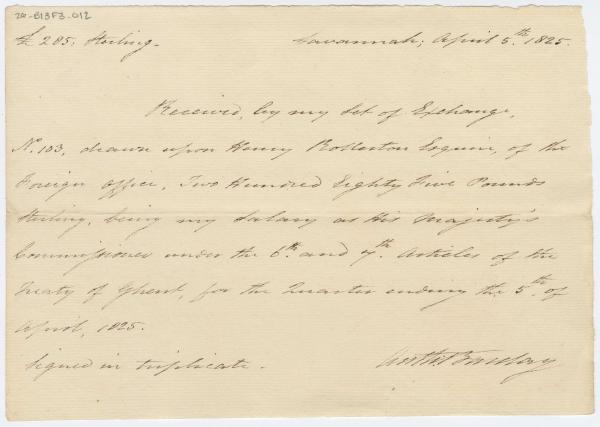 24-B13F3-012
£285; Sterling.
Savannah; April 5.th 1825.
Received, by my Set of Exchange,
N. 103, drawn upon Henry Rolleston Esquire, of the
Foreign Office, Two Hundred Eighty Five Pounds
Sterling, being my Salary as His Majesty's
Commissioner under the 6.th and 7.th Articles of the
Treaty of Ghent, for the Quarter ending the 5.th of
April, 1825.
Signed in triplicate.
Anth: Barclay